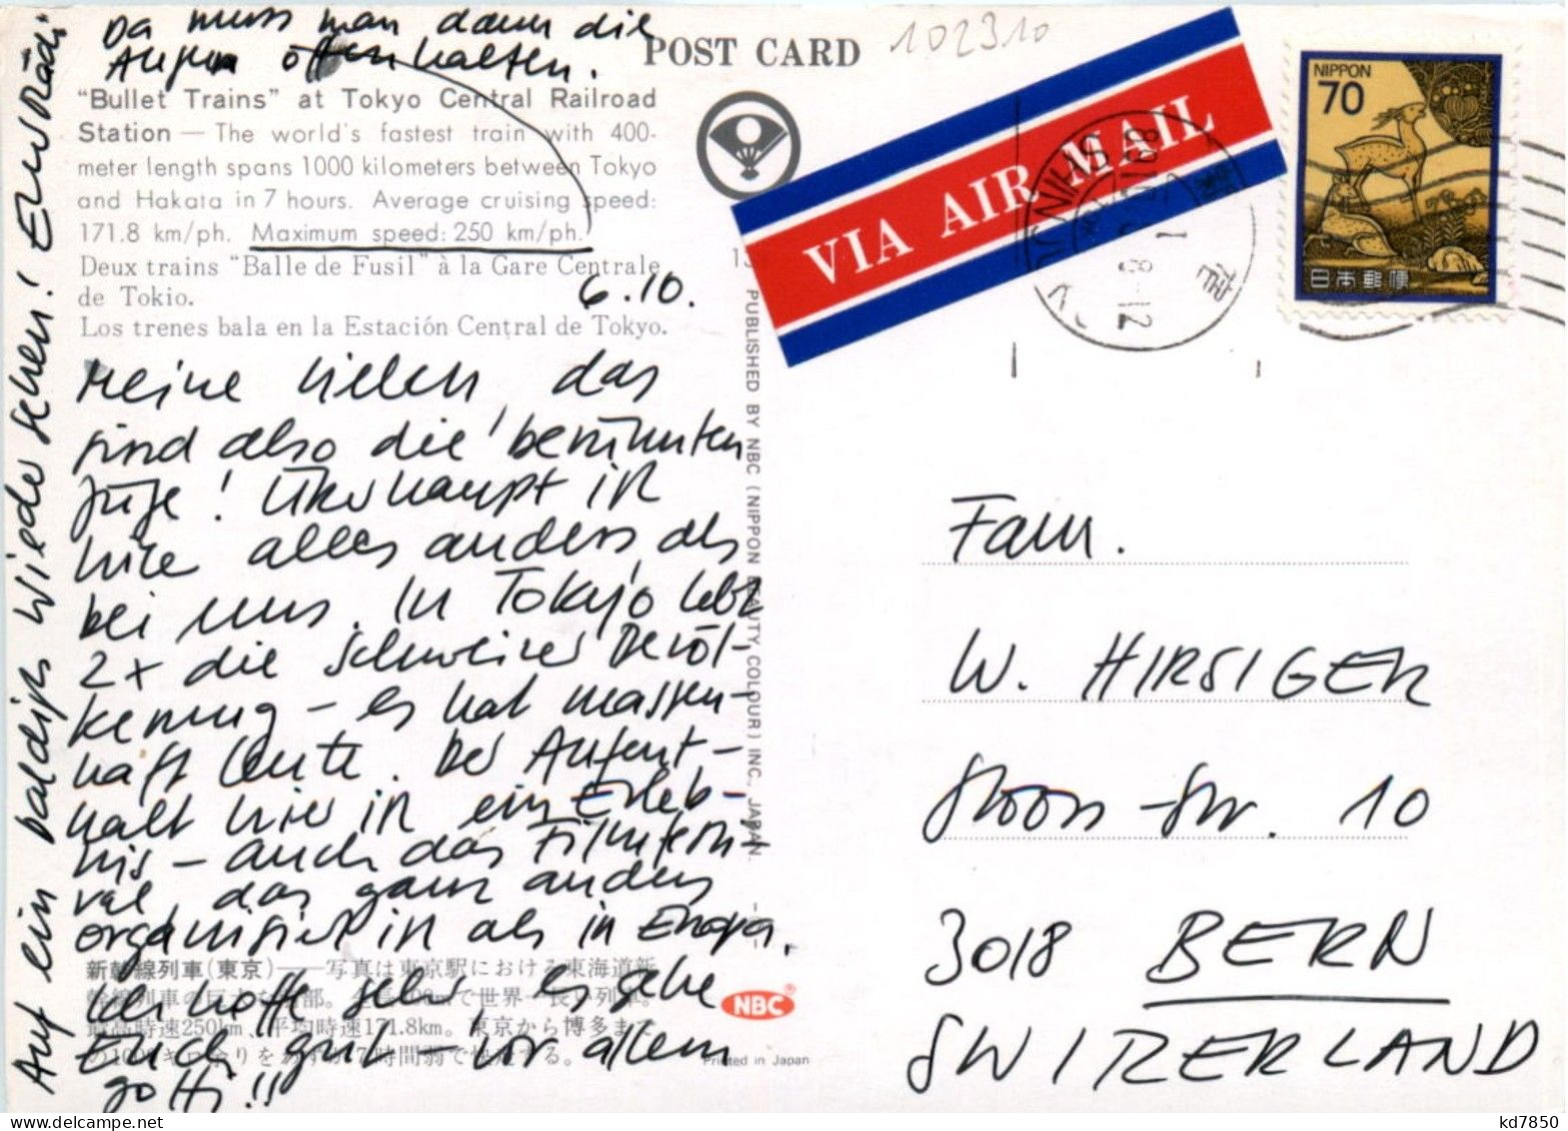 Da muss man dann die
Augen offenhalten.
POST CARD
102310
"Bullet Trains" at Tokyo Central Railroad
Station — The world's fastest train with 400-
meter length spans 1000 kilometers between Tokyo
and Hakata in 7 hours. Average cruising speed:
171.8 km/ph. Maximum speed: 250 km/ph.
Deux trains "Balle de Fusil" à la Gare Centrale
de Tokio.
Los trenes bala en la Estación Central de Tokyo.
6.10.
Meine Lieben das
sind also die berühmten
Züge! Überhaupt ist
hier alles anders als
bei uns. In Tokyo lebt
2x die Schweizer Bevöl-
kerung – es hat massen-
haft Leute. Der Aufent-
halt hier ist ein Erleb-
nis – auch das Filmfesti-
val, das ganz anders
organisiert ist als in Europa.
Wir hoffe sehr, es gehe
Euch gut – vor allem
Gotti!!
Auf ein baldiges Wiedersehen!
新幹線列車(東京)——写真は東京駅における東海道新
最高時速250km、平均時速171.8km。東京から博多まで
PUBLISHED BY NBC (NIPPON BEAUTY COLOUR) INC., JAPAN.
NBC
Printed in Japan
VIA AIR MAIL
NIPPON
70
日本郵便
Fam.
W. HIRSIGER
10
3018 BERN
SWITZERLAND
kd7850